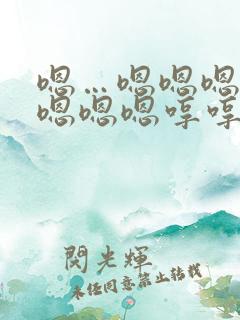 嗯…嗯嗯嗯
嗯嗯嗯哼哼
閃光輝
未经同意禁止转载